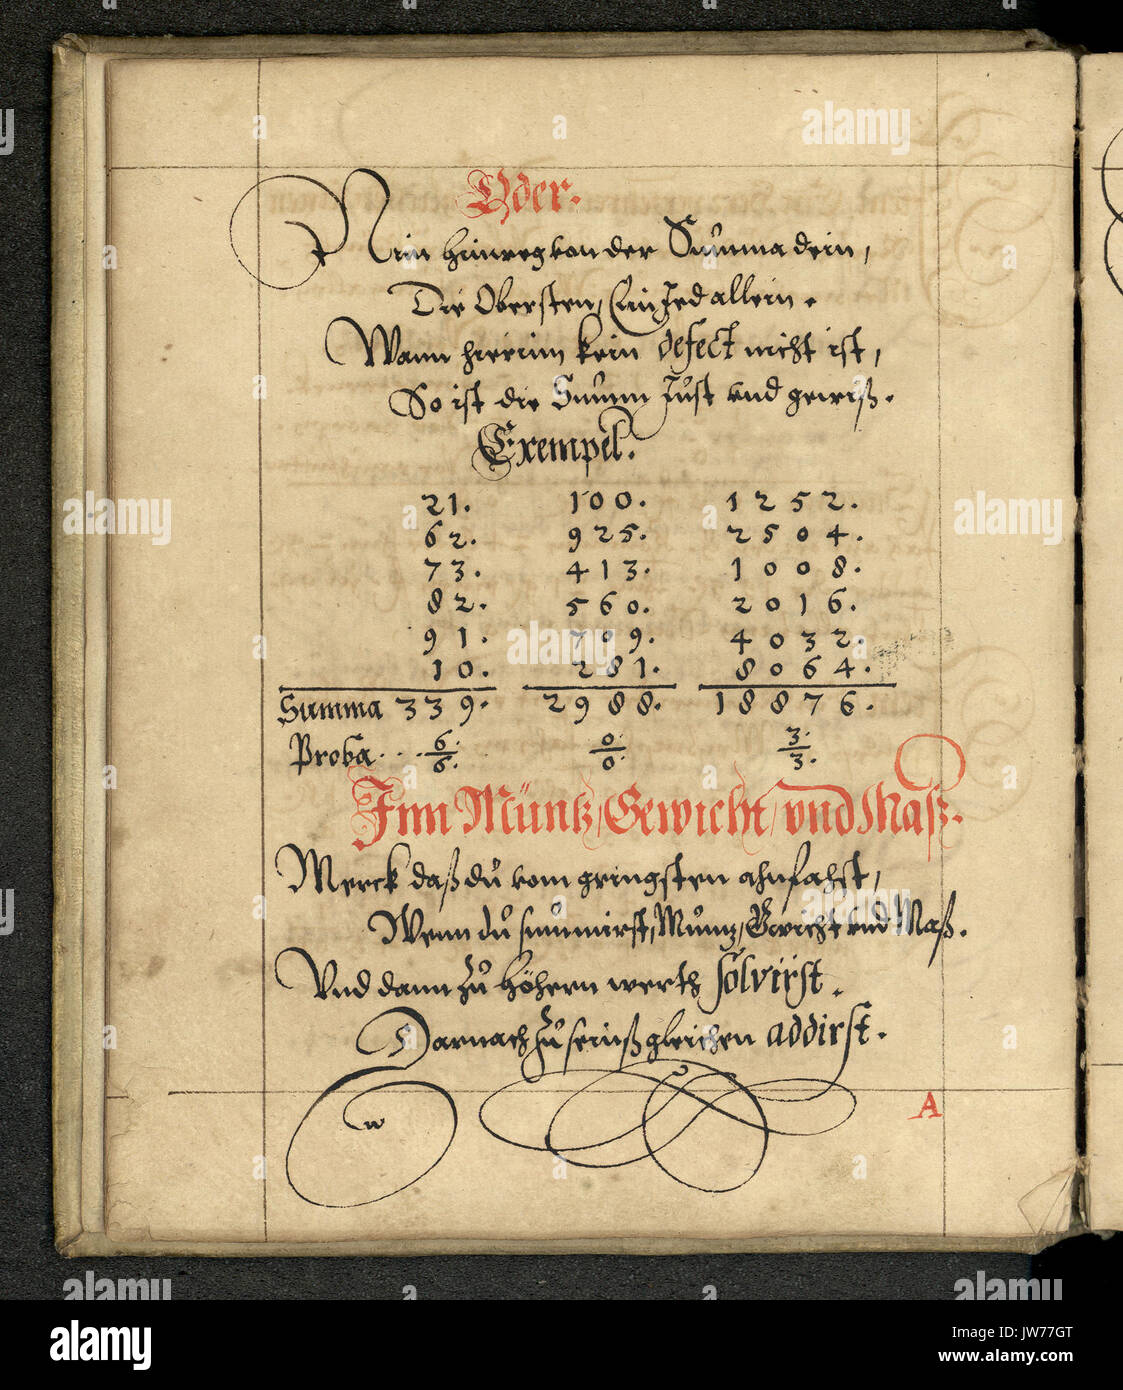 Oder.
Nim hinweg von der Summa dein,
Die Obersten, Ein Jed allein.
Wann hierinn kein defect nicht ist,
So ist die Summ Just vnd gewiß.
Exempel.
21. 100. 1252.
62. 925. 2504.
73. 413. 1008.
82. 560. 2016.
91. 709. 4032.
10. 281. 8064.
Summa 339. 2988. 18876.
Proba... 6/6. 0/0. 3/3.
Inn Müntz, Gewicht, vnd Maß.
Merck daß du vom gringsten ahnfahst,
Wenn du summirst, Müntz, Gwicht vnd Maß.
Vnd dann zu höhern werth solvirst.
Darnach zu seinß gleichen addirst.
A
alamy
a
alamy stock photo
JW77GT
www.alamy.com